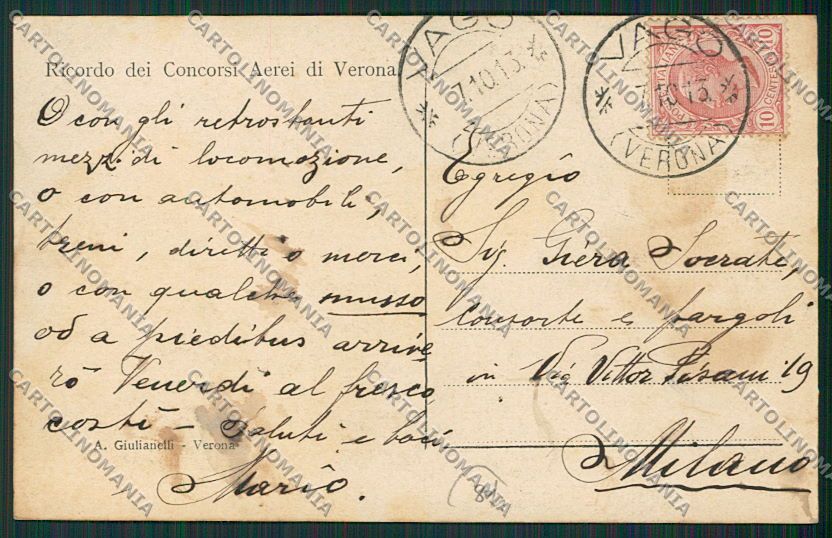 Ricordo dei Concorsi Aerei di Verona
O con gli retrostanti
mezzi di locomozione,
o con automobili,
treni, diretti o merci,
o con qualche musso
od a pieditus arrive
rò Venerdì al fresco
costì - Saluti e baci
A. Giulianelli - Verona
Mario.
VAGO
7.10.13.
(VERONA)
VAGO
7.10.13.
(VERONA)
10 CENTES. 10
Egregio
Sig. Giera Socrate,
consorte e pargoli
in Via Vittor Pisani 19
Milano
CARTOLINOMANIA